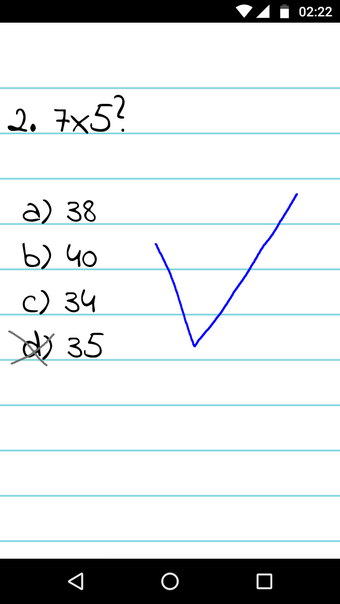 02:22
2. 7x5?
a) 38
b) 40
c) 34
d) 35